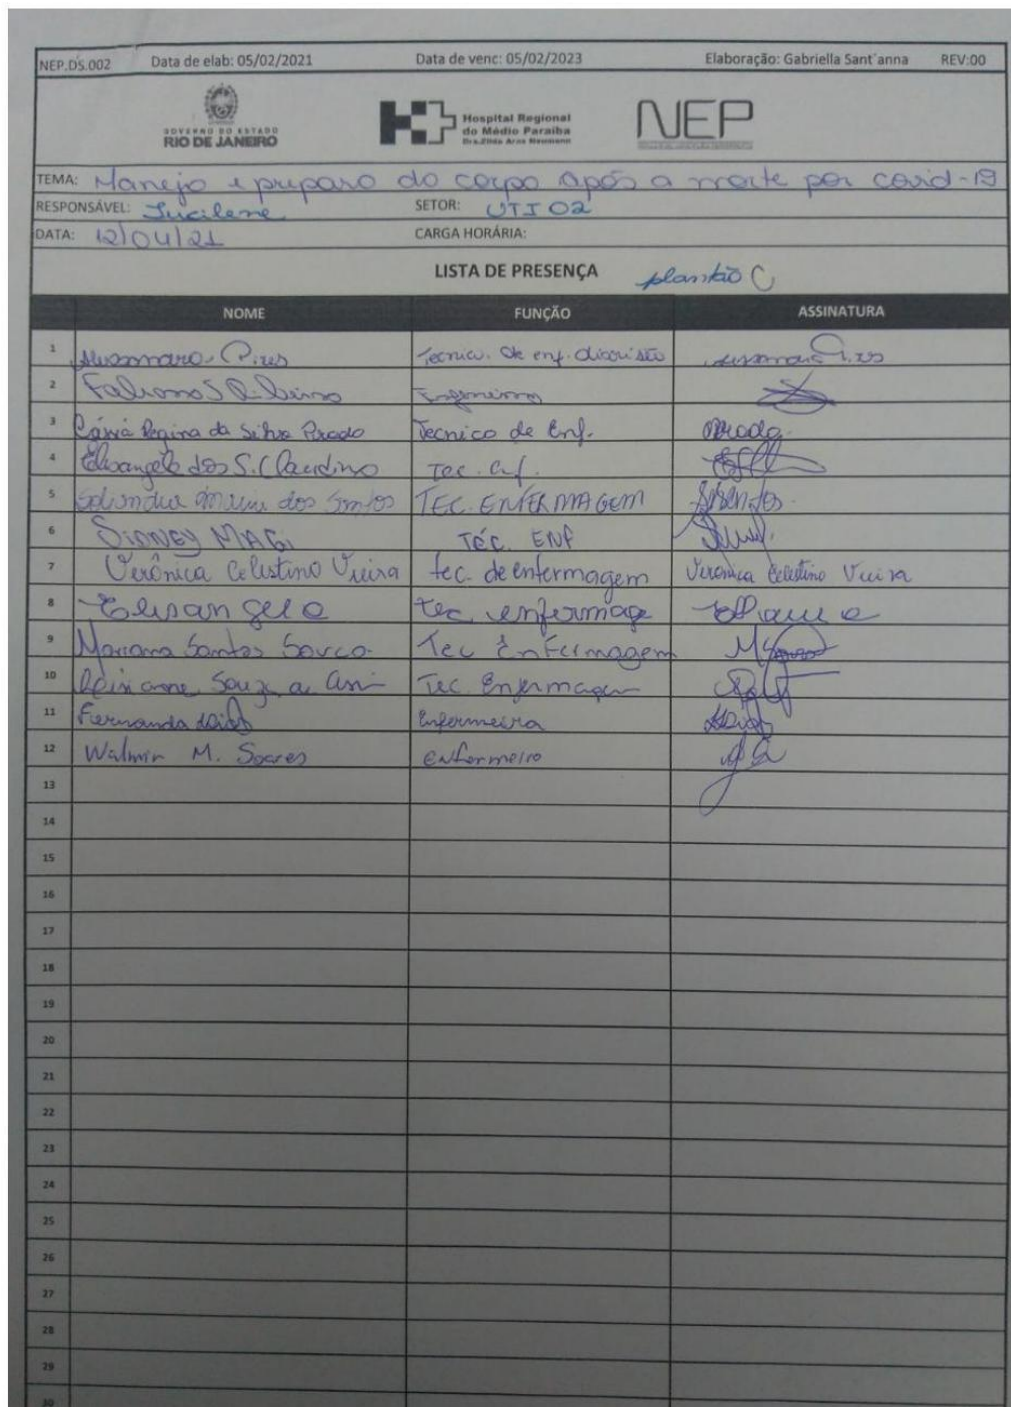 NEP.DS.002 Data de elab: 05/02/2021 Data de venc: 05/02/2023 Elaboração: Gabriella Sant´anna REV:00
GOVERNO DO ESTADO
RIO DE JANEIRO
Hospital Regional
do Médio Paraíba
Dra.Zilda Arns Neumann
NEP
TEMA: Manejo e preparo do corpo após a morte por covid-19
RESPONSÁVEL: Jucilene SETOR: UTI 02
DATA: 12/04/21 CARGA HORÁRIA:
LISTA DE PRESENÇA plantão C
NOME FUNÇÃO ASSINATURA
1 Pires Tecnico. de enf.
2 Fabiano S Ribeiro Enfermeiro
3 Cássia Regina da Silva Prado Tecnico de Enf. Prado
4 Elisangela dos S. Claudino Tec. Enf.
5 dos Santos TEC. ENFERMAGEM
6 SIDNEY MAGI TÉC. ENF
7 Verônica Celestino Vieira tec. de enfermagem Verônica Celestino Vieira
8 Elisangela tec. enfermage
9 Mariana Santos Souza Tec Enfermagem
10 Souza Tec. Enfermagem
11 Fernanda Enfermeira
12 Walmir M. Soares Enfermeiro
13
14
15
16
17
18
19
20
21
22
23
24
25
26
27
28
29
30